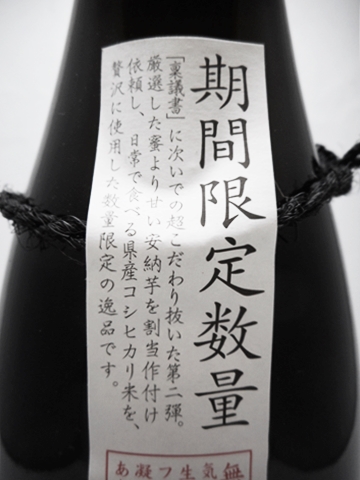 期間限定数量
「稟議書」に次いでの超こだわり抜いた第二弾。
厳選した蜜より甘い安納芋を割当作付け
依頼し、日常で食べる県産コシヒカリ米を、
贅沢に使用した数量限定の逸品です。